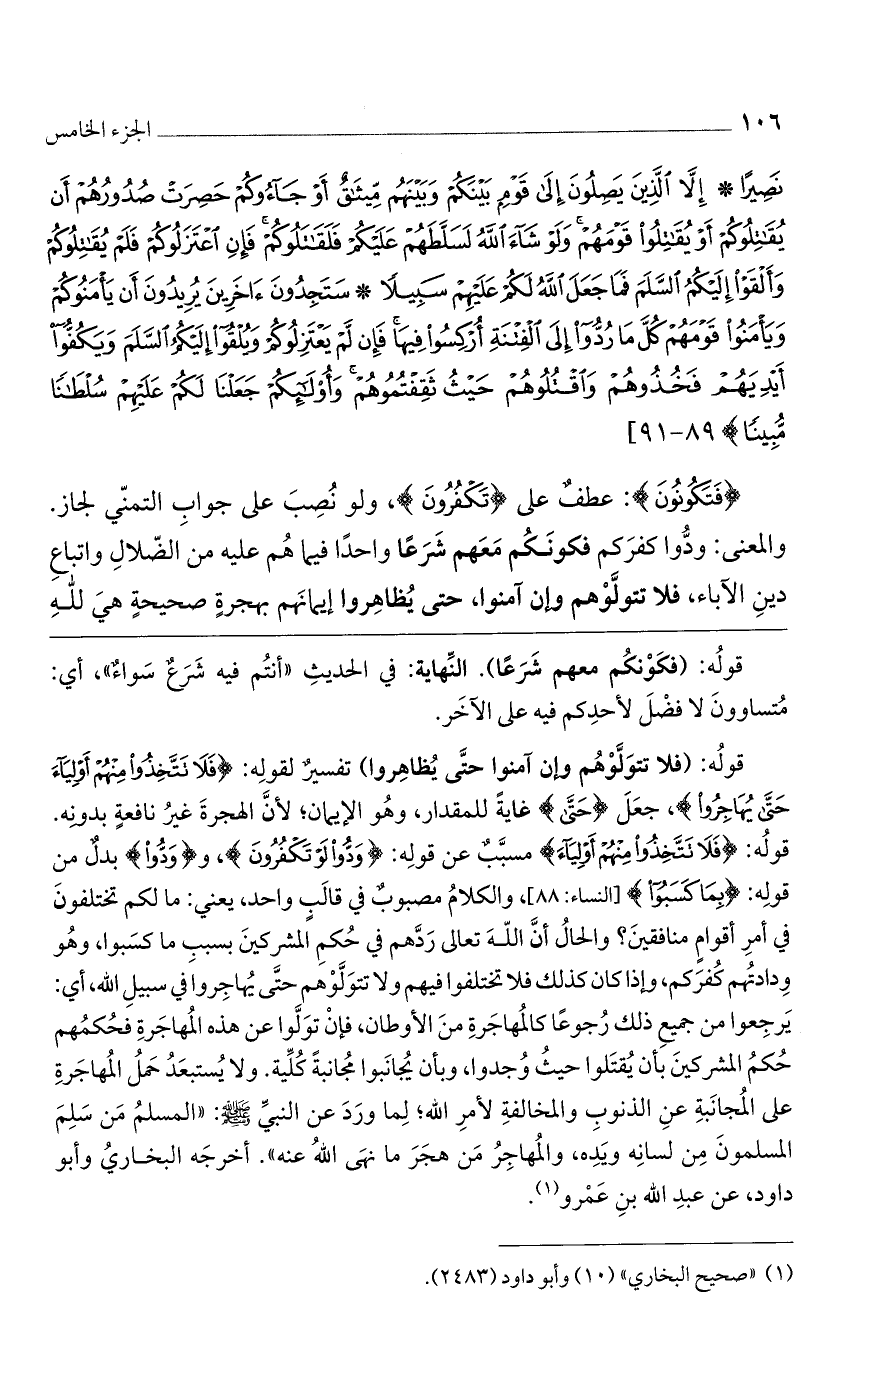 ١٠٦ الجزء الخامس
نَصِيرًا * إِلَّا ٱلَّذِينَ يَصِلُونَ إِلَىٰ قَوْمٍ بَيْنَكُمْ وَبَيْنَهُم مِّيثَٰقٌ أَوْ جَآءُوكُمْ حَصِرَتْ صُدُورُهُمْ أَن
يُقَٰتِلُوكُمْ أَوْ يُقَٰتِلُوا۟ قَوْمَهُمْ ۚ وَلَوْ شَآءَ ٱللَّهُ لَسَلَّطَهُمْ عَلَيْكُمْ فَلَقَٰتَلُوكُمْ ۚ فَإِنِ ٱعْتَزَلُوكُمْ فَلَمْ يُقَٰتِلُوكُمْ
وَأَلْقَوْا۟ إِلَيْكُمُ ٱلسَّلَمَ فَمَا جَعَلَ ٱللَّهُ لَكُمْ عَلَيْهِمْ سَبِيلًا * سَتَجِدُونَ ءَاخَرِينَ يُرِيدُونَ أَن يَأْمَنُوكُمْ
وَيَأْمَنُوا۟ قَوْمَهُمْ كُلَّ مَا رُدُّوٓا۟ إِلَى ٱلْفِتْنَةِ أُرْكِسُوا۟ فِيهَا ۚ فَإِن لَّمْ يَعْتَزِلُوكُمْ وَيُلْقُوٓا۟ إِلَيْكُمُ ٱلسَّلَمَ وَيَكُفُّوٓا۟
أَيْدِيَهُمْ فَخُذُوهُمْ وَٱقْتُلُوهُمْ حَيْثُ ثَقِفْتُمُوهُمْ ۚ وَأُو۟لَٰٓئِكُمْ جَعَلْنَا لَكُمْ عَلَيْهِمْ سُلْطَٰنًا
مُّبِينًا ﴾ ٨٩-٩١]
﴿فَتَكُونُونَ﴾: عطفٌ على ﴿تَكْفُرُونَ﴾، ولو نُصِبَ على جوابِ التمنّي لجاز.
والمعنى: ودُّوا كفرَكم فكونَكُم مَعَهم شَرَعًا واحدًا فيما هُم عليه من الضّلالِ واتباعِ
دينِ الآباء، فلا تتولَّوْهم وإن آمنوا، حتى يُظاهِروا إيمانَهم بهجرةٍ صحيحةٍ هيَ للهِ
قولُه: (فكَوْنكُم معهم شَرَعًا). النِّهاية: في الحديثِ «أنتُم فيه شَرَعٌ سَواءٌ»، أي:
مُتساوونَ لا فضْلَ لأحدِكم فيه على الآخَر.
قولُه: (فلا تتوَلَّوْهُم وإن آمنوا حتَّى يُظاهِروا) تفسيرٌ لقولِه: ﴿فَلَا نَتَّخِذُوا۟ مِنْهُمْ أَوْلِيَآءَ
حَتَّىٰ يُهَاجِرُوا۟﴾، جعلَ ﴿حَتَّىٰ﴾ غايةً للمقدار، وهُو الإيمان؛ لأنَّ الهجرةَ غيرُ نافعةٍ بدونِه.
قولُه: ﴿فَلَا نَتَّخِذُوا۟ مِنْهُمْ أَوْلِيَآءَ﴾ مسبَّبٌ عن قولِه: ﴿وَدُّوا۟ لَوْ تَكْفُرُونَ﴾، و﴿وَدُّوا۟﴾ بدلٌ من
قولِه: ﴿بِمَا كَسَبُوٓا۟﴾ [النساء: ٨٨]، والكلامُ مصبوبٌ في قالَبٍ واحد، يعني: ما لكم تختلفونَ
في أمرِ أقوامٍ منافقين؟ والحالُ أنَّ اللهَ تعالى رَدَّهم في حُكمِ المشركينَ بسببِ ما كسَبوا، وهُو
ودادتُهم كُفرَكم، وإذا كان كذلك فلا تختلفوا فيهم ولا تتولَّوْهم حتَّى يُهاجِروا في سبيلِ الله، أي:
يَرجِعوا من جميعِ ذلك رُجوعًا كالمُهاجَرةِ منَ الأوطان، فإنْ توَلَّوا عن هذه المُهاجَرةِ فحُكمُهم
حُكمُ المشركينَ بأن يُقتَلوا حيثُ وُجِدوا، وبأن يُجانَبوا مُجانبةً كُلِّية. ولا يُستبعَدُ حَملُ المُهاجَرةِ
على المُجانَبةِ عنِ الذنوبِ والمخالفةِ لأمرِ الله؛ لِما ورَدَ عن النبيِّ ﷺ: «المسلمُ مَن سَلِمَ
المسلمونَ مِن لسانِه ويَدِه، والمُهاجِرُ مَن هجَرَ ما نهَى اللهُ عنه». أخرجَه البخاريُّ وأبو
داود، عن عبدِ الله بنِ عَمْرٍو(١).
(١) «صحيح البخاري» (١٠) وأبو داود (٢٤٨٣).